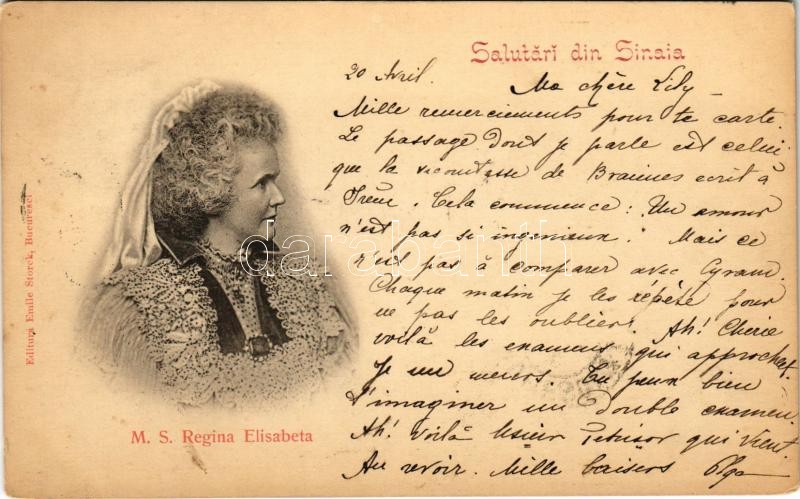 Salutări din Sinaia
20 Avril. Ma chère Lily
Mille remerciements pour ta carte.
Le passage dont je parle est celui
que la vicomtesse de Braines écrit à
Irène. Cela commence: Un amour
n'est pas si ingénieux." Mais ce
n'est pas à comparer avec Cyrano.
Chaque matin je les répète pour
ne pas les oublier. Ah! Chérie
voilà les examens qui approchent.
Je me meurs. Tu peux bien
t'imaginer un double examen.
Ah! Voilà qui vient.
Au revoir. Mille baisers Olga
M. S. Regina Elisabeta
Editura Emile Storck, Bucuresci
darabanth